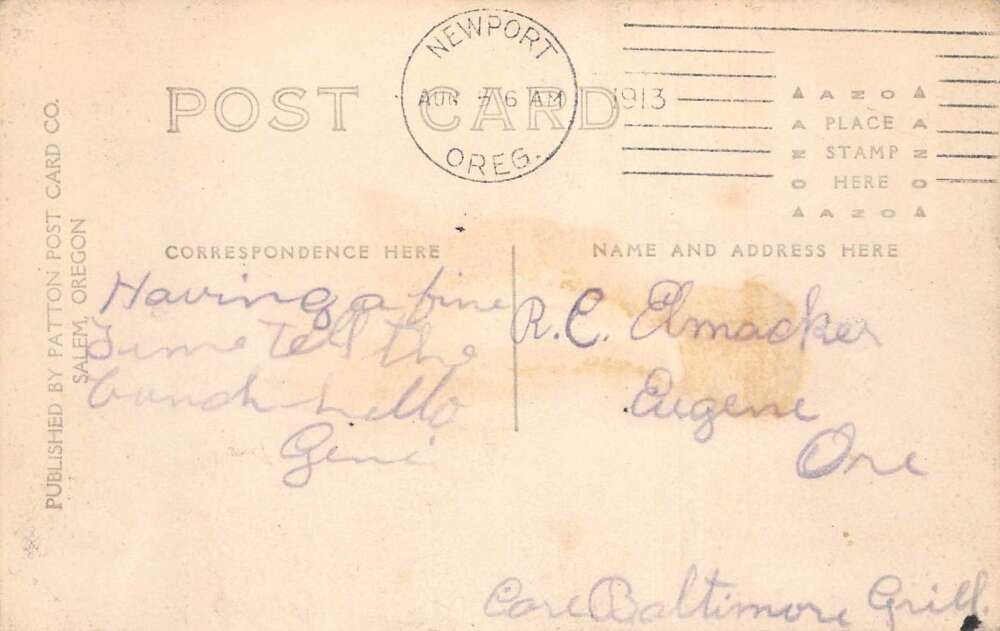 NEWPORT
AUG 5 6 AM 1913
OREG.
POST CARD
AZO
PLACE
STAMP
HERE
AZO
AZO
AZO
PUBLISHED BY PATTON POST CARD CO.
SALEM, OREGON
CORRESPONDENCE HERE
NAME AND ADDRESS HERE
Having a fine
Time tell the
bunch hello
Gene
R. C. Elmacker
Eugene
Ore
Care Baltimore Grill.